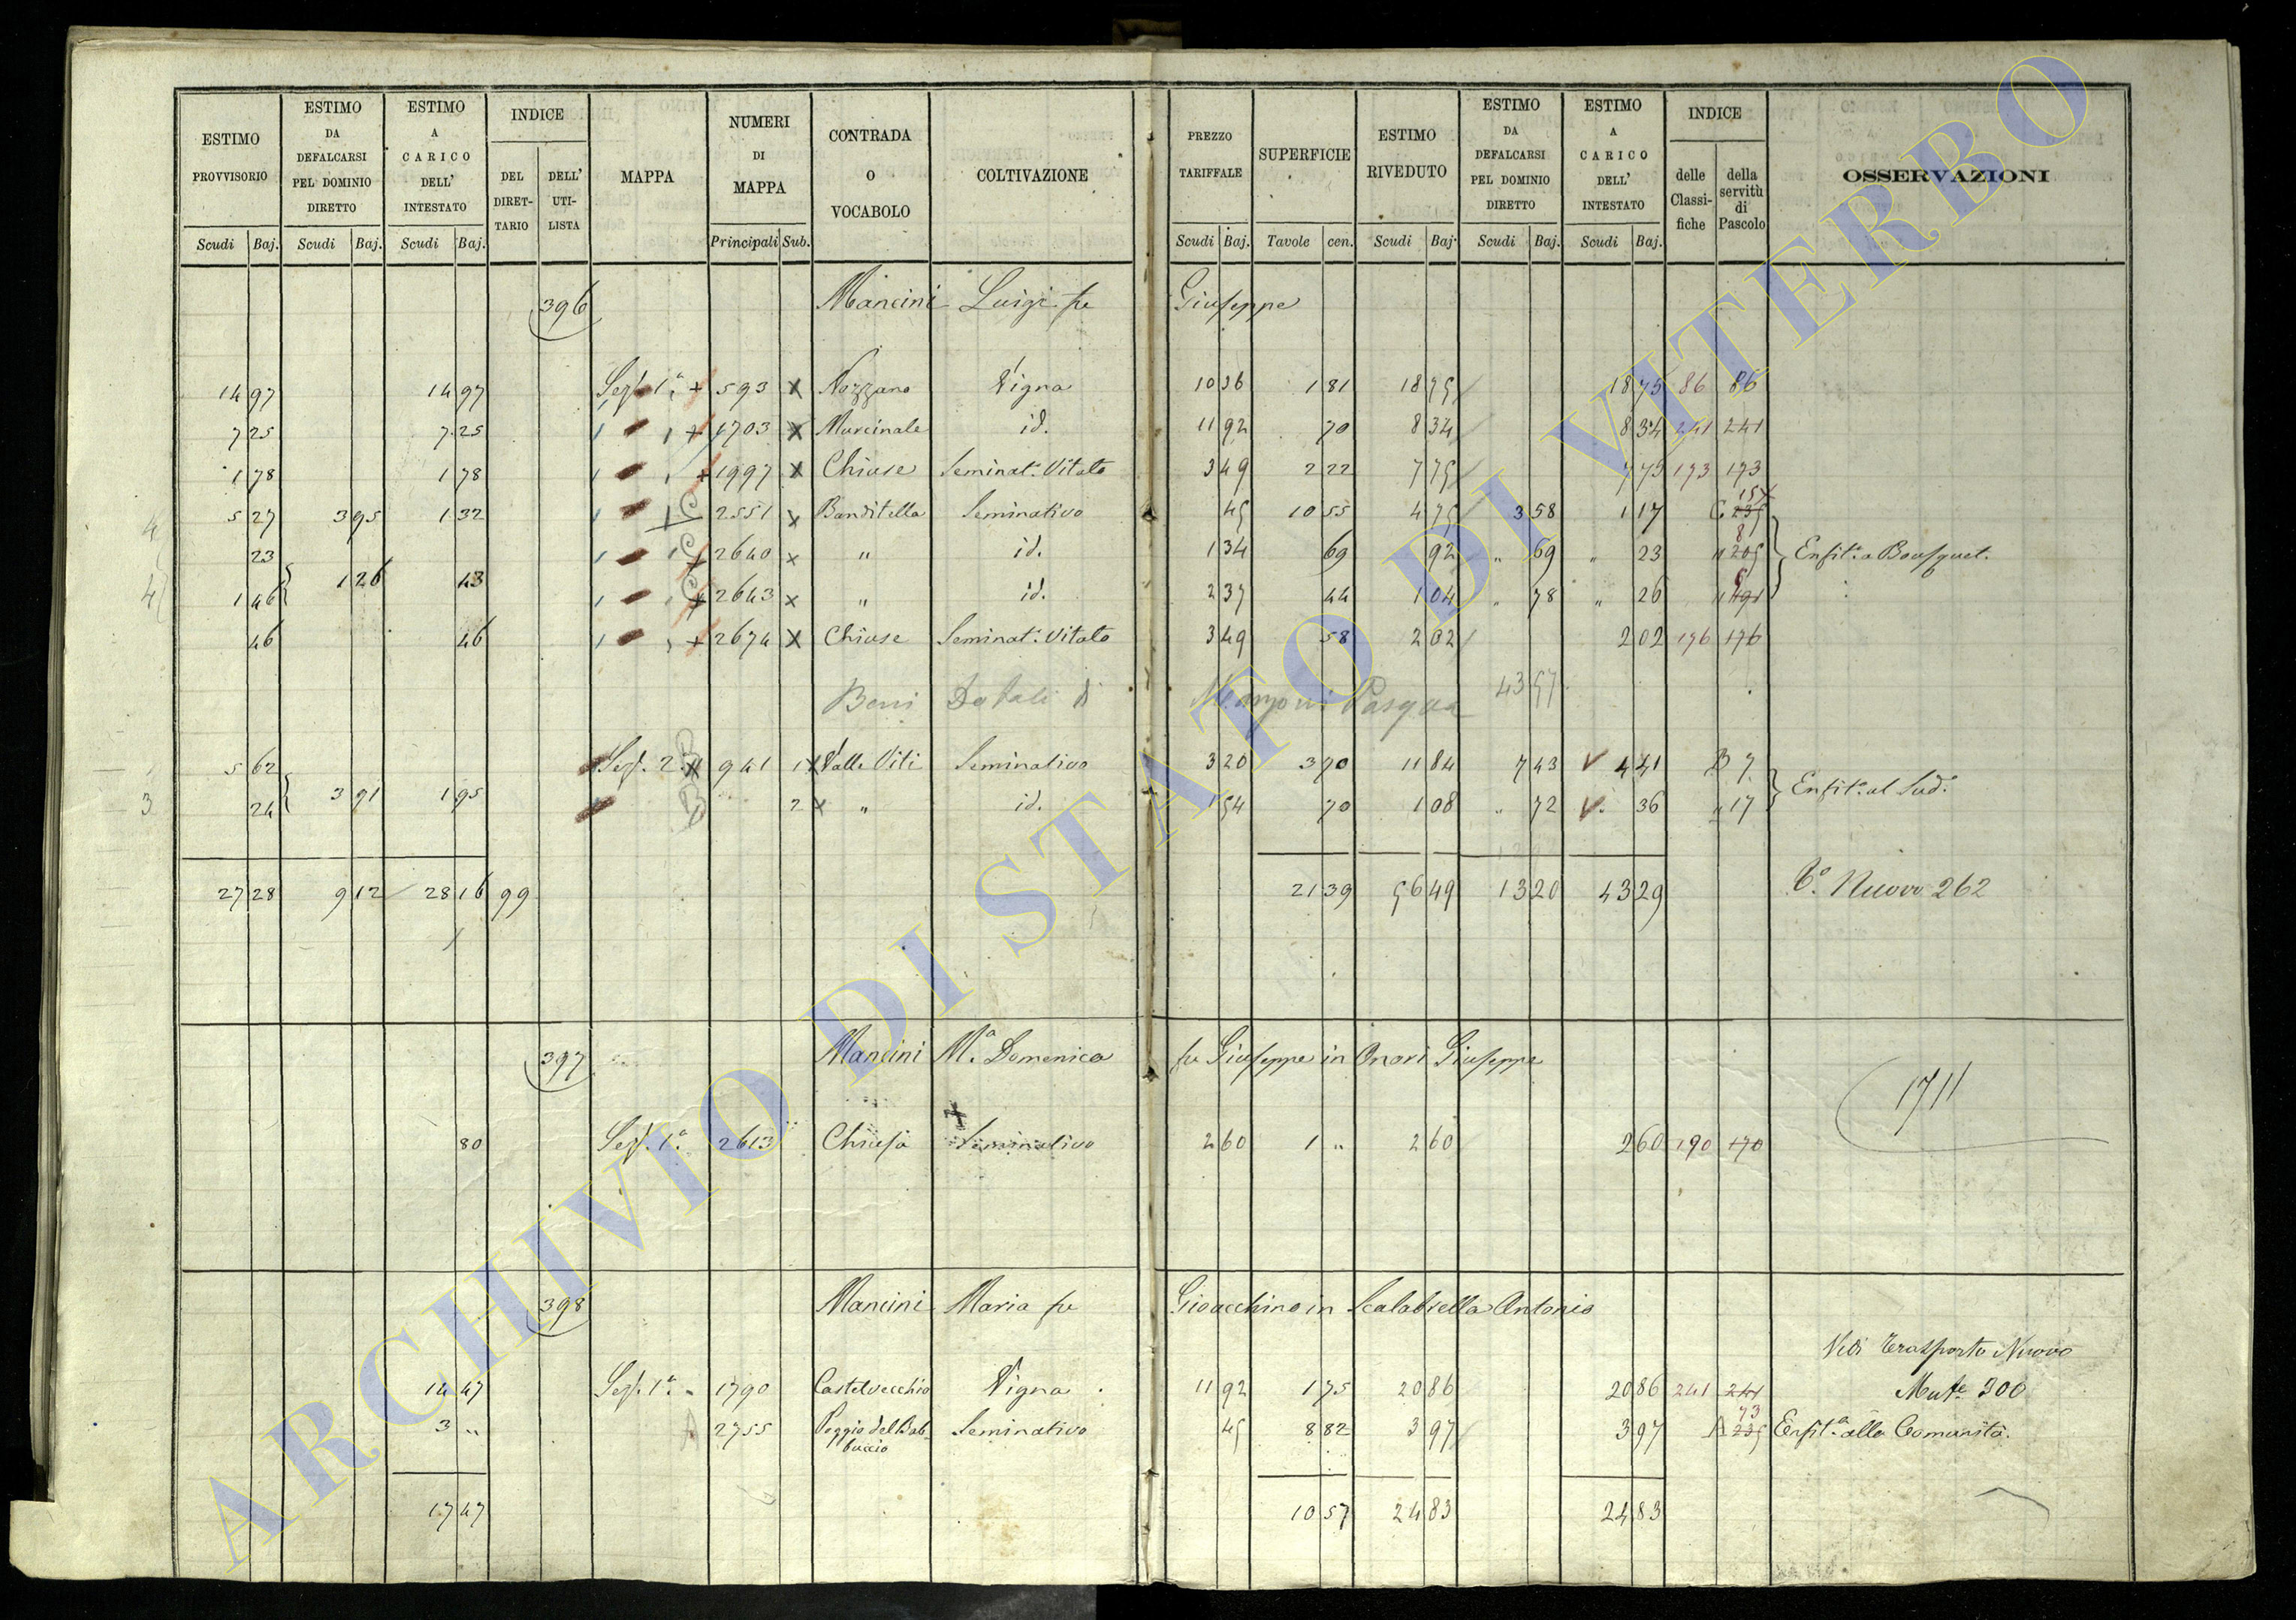 ESTIMO PROVVISORIO Scudi Baj. | ESTIMO DA DEFALCARSI PEL DOMINIO DIRETTO Scudi Baj. | ESTIMO A CARICO DELL' INTESTATO Scudi Baj. | INDICE DEL DIRET-TARIO | DELL' UTI-LISTA | MAPPA | NUMERI DI MAPPA Principali Sub. | CONTRADA O VOCABOLO | COLTIVAZIONE | PREZZO TARIFFALE Scudi Baj. | SUPERFICIE Tavole cen. | ESTIMO RIVEDUTO Scudi Baj. | ESTIMO DA DEFALCARSI PEL DOMINIO DIRETTO Scudi Baj. | ESTIMO A CARICO DELL' INTESTATO Scudi Baj. | INDICE delle Classi-fiche | della servitù di Pascolo | OSSERVAZIONI
396 Mancini Luigi fu Giuseppe
14 97 14 97 Sez. 1ª + 593 x Nozzano Vigna 10 36 1 81 18 75 18 75 86 86
7 25 7 25 1 1 + 1703 x Murcinale id. 11 92 70 8 34 8 34 241 241
1 78 1 78 1 1 + 1997 x Chiuse Seminat.º Vitato 3 49 2 22 7 75 7 75 173 173
4 5 27 3 95 1 32 1 C 2551 x Banditella Seminativo 45 10 55 4 75 3 58 1 17 C. 235 157
23 1 1 C 2640 x " id. 1 34 69 92 " 69 " 23 " 205 81 Enfit.ª a Bousquet.
4 1 46 1 26 43 1 1 C 2643 x " id. 2 37 44 1 04 " 78 " 26 " 191 6
46 46 1 1 + 2674 x Chiuse Seminat.º Vitato 3 49 58 2 02 2 02 176 176
Beni Dotali di Mangoni Pasqua 43 57
5 62 Sez. 2.ª 941 1 x Valle Viti Seminativo 3 20 3 70 11 84 7 43 V 4 41 B 7
3 24 3 91 1 95 2 x " id. 1 54 70 1 08 " 72 V. 36 " 17 Enfit.ª al Sud.º
27 28 9 12 28 16 99 21 39 56 49 13 20 43 29 C.º Nuovo 262
397 Mancini M.ª Domenica fu Giuseppe in Onori Giuseppe
1711
80 Sez. 1.ª 2613 Chiusa Seminativo 2 60 1 " 2 60 2 60 190 170
398 Mancini Maria fu Gioacchino in Scalabrella Antonio
Vedi Trasporto Nuovo
14 47 Sez. 1ª 1790 Castelvecchio Vigna 11 92 1 75 20 86 20 86 241 241 Mut.e 300
3 " A 2755 Poggio del Bab-buccio Seminativo 45 8 82 3 97 3 97 A 235 73 Enfit.ª alla Comunità.
17 47 10 57 24 83 24 83
ARCHIVIO DI STATO DI VITERBO